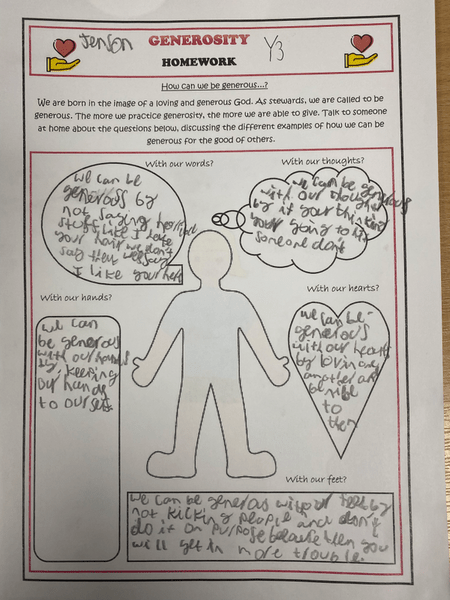 Jenson
GENEROSITY
HOMEWORK
Y3
How can we be generous...?
We are born in the image of a loving and generous God. As stewards, we are called to be
generous. The more we practice generosity, the more we are able to give. Talk to someone
at home about the questions below, discussing the different examples of how we can be
generous for the good of others.
With our words?
we can be
geneross by
not saying
stuff like I hate
your hair we don't
say that we say
I like your hair
With our thoughts?
we can be generous
with our thoughts
by if your thinking
your going to hit
someone don't
With our hands?
we can
be generous
with our hands
by keeping
our hands
to
With our hearts?
we can be
generous
with our hearts
by
another and
be
to
them
With our feet?
we can be generous feet by
not kicking people and don't
do it on purpose because then you
will get in more trouble.